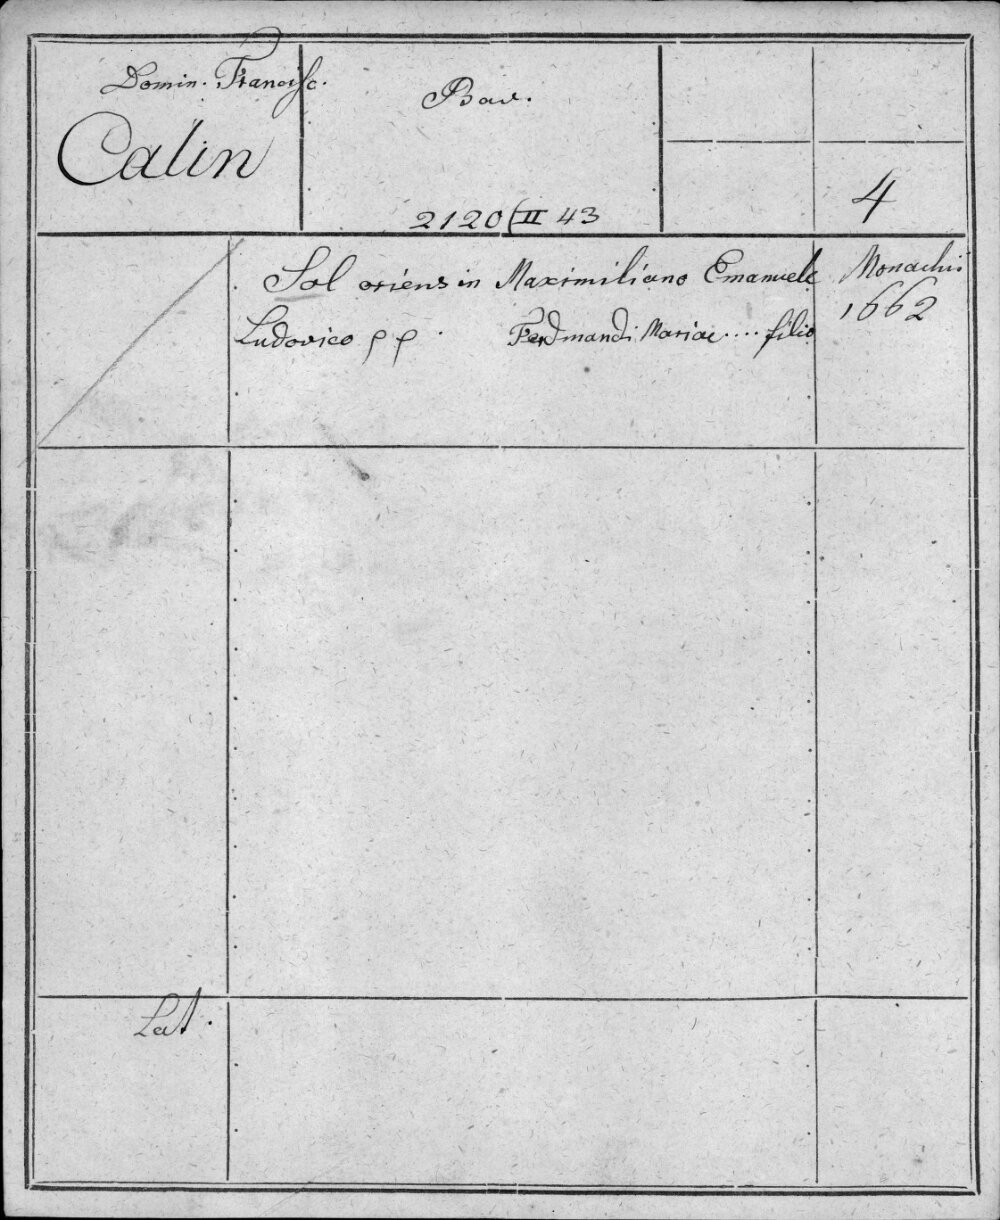 Domin. Francisc.
Calin
Bav.
2120 (II 43
4
Sol oriens in Maximiliano Emanuele
Ludovico pp. Ferdinandi Mariae .... filio
Monachii
1662
Lat.